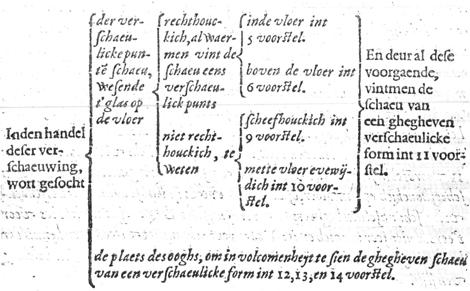 Inden handel
deser ver-
schaeuwing,
wort gesocht
der ver-
schaeu-
licke pun-
tē schaeu,
wesende
t'glas op
de vloer
rechthouc-
kich, al waer-
men vint de
schaeu eens
verschaeu-
lick punts
inde vloer int
5 voorstel.
boven de vloer int
6 voorstel.
niet recht-
houckich, te
weten
scheefhouckich int
9 voorstel.
mette vloer evewij-
dich int 10 voor-
stel.
En deur al dese
voorgaende,
vintmen de
schaeu van
een ghegheven
verschaeulicke
form int 11 voor-
stel.
de plaets des ooghs, om in volcomenheyt te sien de ghegheven schaeu
van een verschaeulicke form int 12, 13, en 14 voorstel.